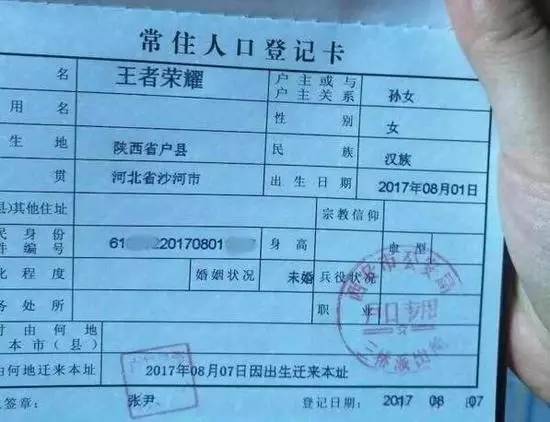 常住人口登记卡
名 王者荣耀 户主或与户主关系 孙女
用名 性别 女
生地 陕西省户县 民族 汉族
贯 河北省沙河市 出生日期 2017年08月01日
县)其他住址 宗教信仰
民身份件编号 61 220170801 身高 血型
化程度 婚姻状况 未婚 兵役状况
务处所 职业
时由何地
本市(县)
何地迁来本址 2017年08月07日因出生迁来本址
签章: 张尹 登记日期: 2017 08 07